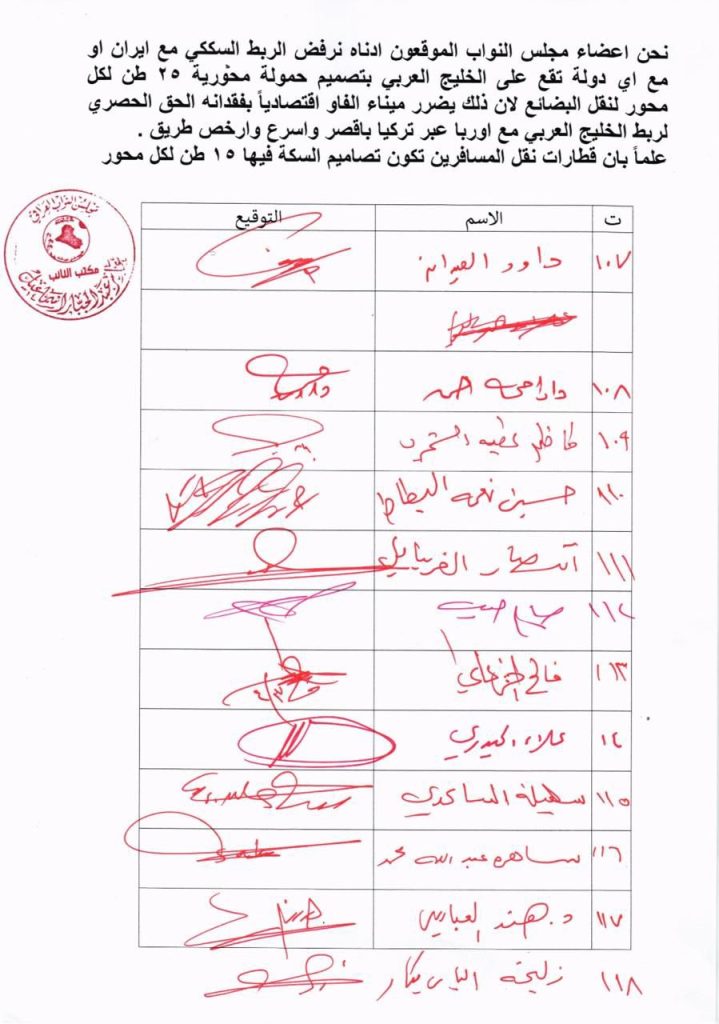 نحن اعضاء مجلس النواب الموقعون ادناه نرفض الربط السككي مع ايران او
مع اي دولة تقع على الخليج العربي بتصميم حمولة محوْرية ٢٥ طن لكل
محور لنقل البضائع لان ذلك يضرر ميناء الفاو اقتصادياً بفقدانه الحق الحصري
لربط الخليج العربي مع اوربا عبر تركيا باقصر واسرع وارخص طريق .
علماً بان قطارات نقل المسافرين تكون تصاميم السكة فيها ١٥ طن لكل محور
ت الاسم التوقيع
مجلس النواب العراقي
مكتب النائب
١٠٧ داود العيدان
١٠٨ دارا احمد
١٠٩ كاظم عطيه الشمري
١١٠ حسين نعمه البطاط
١١١ انتصار الغريباوي
١١٢
١١٣ فالح الخزعلي
١١٤ علاء الحيدري
١١٥ سهيلة الساعدي
١١٦ ساهره عبد الله محمد
١١٧ د. هند العباسي
١١٨ زليخة الياس بكار